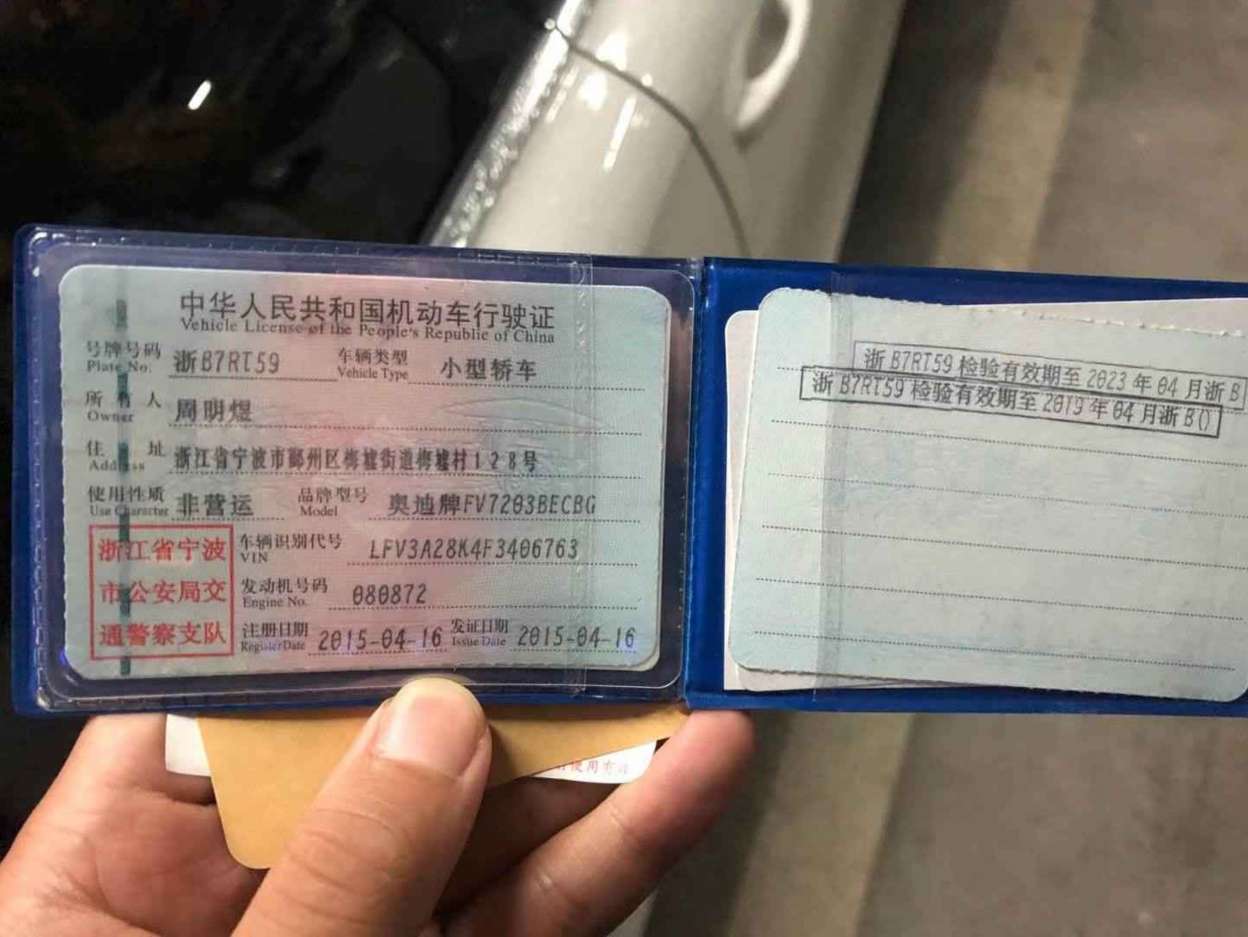 中华人民共和国机动车行驶证
Vehicle License of the People's Republic of China
号牌号码 浙B7RT59 车辆类型 小型轿车
Plate No. Vehicle Type
所有人 周明煜
Owner
住址 浙江省宁波市鄞州区梅墟街道梅墟村128号
Address
使用性质 非营运 品牌型号 奥迪牌FV7203BECBG
Use Character Model
浙江省宁波
市公安局交
通警察支队
车辆识别代号 LFV3A28K4F3406763
VIN
发动机号码 080872
Engine No.
注册日期 2015-04-16 发证日期 2015-04-16
Register Date Issue Date
浙B7RT59 检验有效期至2023年04月浙B
浙B7RT59 检验有效期至2019年04月浙B()
使用有